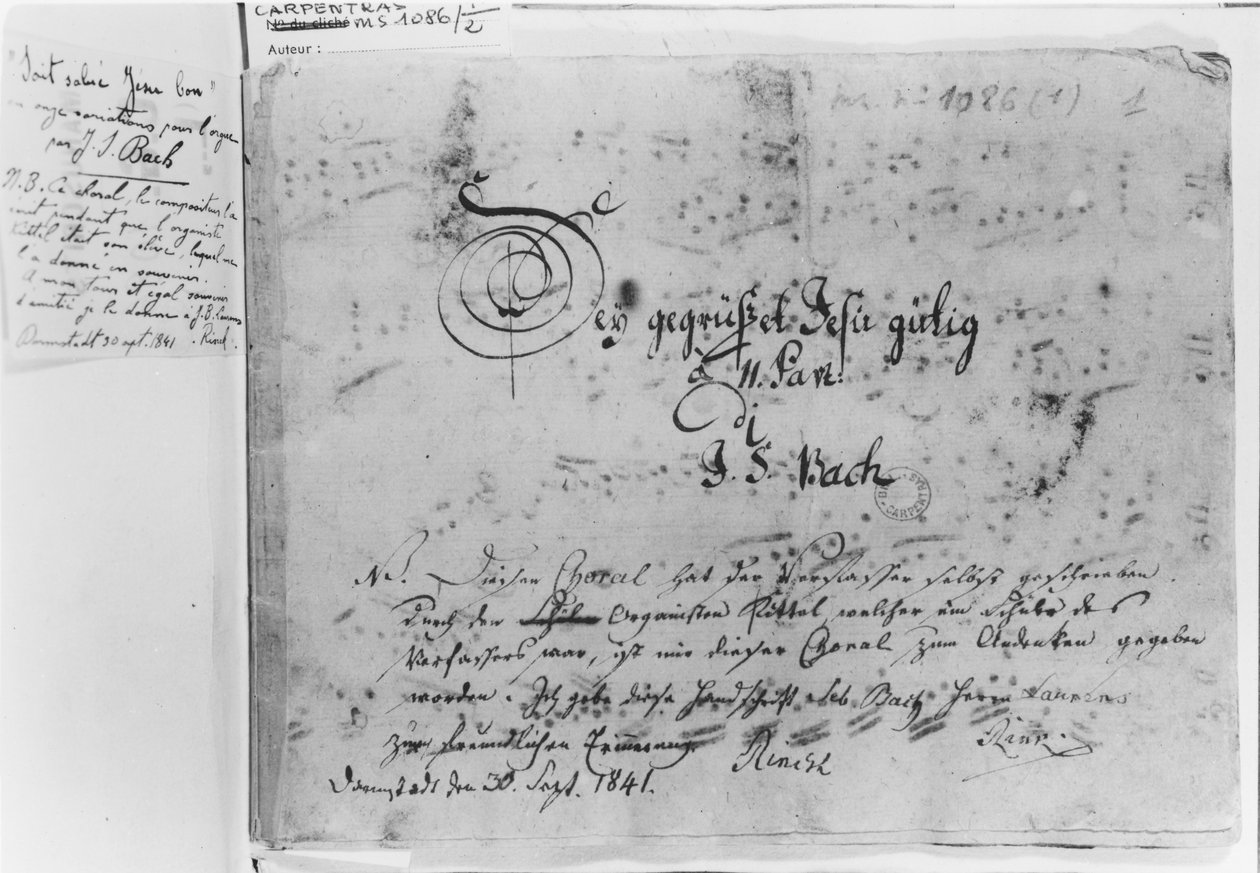 CARPENTRAS
N° du cliché MS 1086/1/2
Auteur :
"Soit salué Jésu bon"
en onze variations pour l'orgue
par J. S. Bach
N. B. Ce choral, le compositeur l'a
écrit pendant que l'organiste
Kittel était son élève, lequel me
l'a donné en souvenir.
A mon tour et égal souvenir
d'amitié je le donne à J. B. Laurens
Darmstadt 30 1841. Rinck.
ms. n° 1086 (1) 1
Sey gegrüßet Jesu gütig
à 11. Part:
di
J. S. Bach
CARPENTRAS
NB. Diesen Choral hat der Verfasser selbst geschrieben.
Durch den Schüler Organisten Kittel, welcher ein Schüler des
Verfassers war, ist mir dieser Choral zum Andenken gegeben
worden. Ich gebe diese Handschrift Seb Bach Herrn Laurens
zur freundlichen Erinnerung.
Rinck
Darmstadt den 30. Sept. 1841.